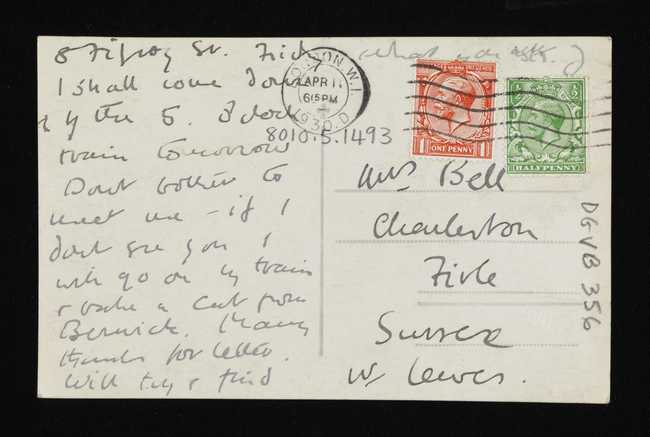 8 Fitzroy St. Frid
I shall come down
by the 5.
train tomorrow
Dont bother to
meet me - if I
dont see you I
will go on by train
& take a cab from
Berwick. Many
thanks for letter.
Will try & find
what you ask.
LONDON. W.1.
APR 11
6 15 PM
1930. D
8010.5.1493
ONE PENNY
HALFPENNY
Mrs Bell
Charleston
Firle
Sussex
Nr Lewes.
DGVB 356